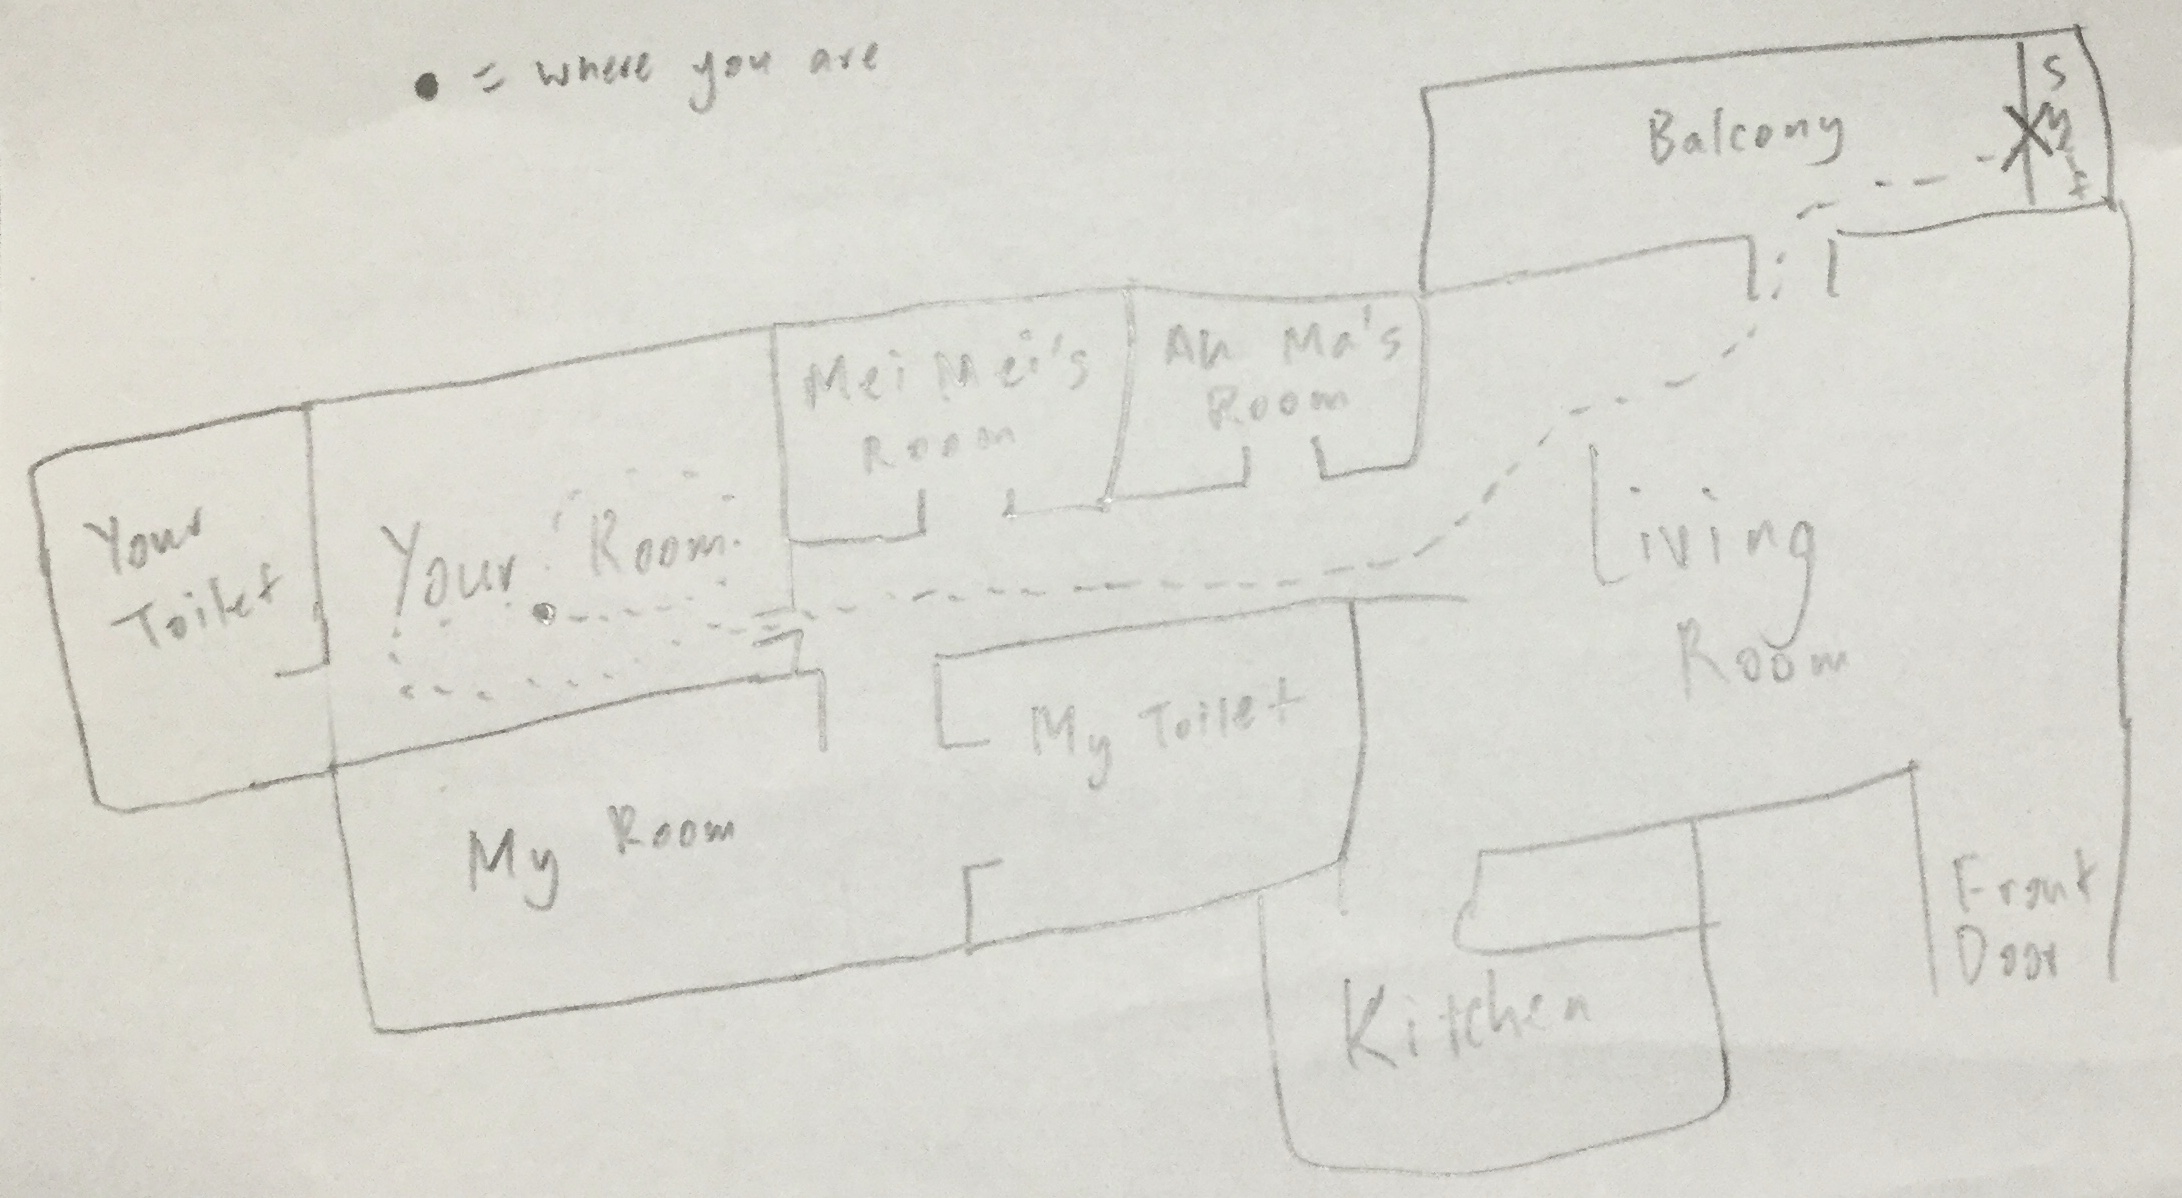 = where you are
Balcony
Mei Mei's
Room
Ah Ma's
Room
Your
Toilet
Your Room
Living
Room
My Toilet
My Room
Kitchen
Front
Door